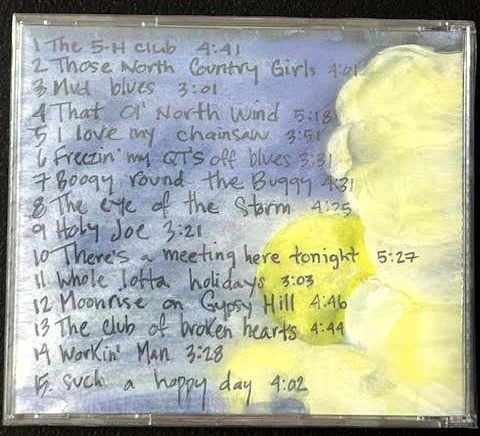 1 The 5-H club 4:41
2 Those North Country Girls 4:01
3 Mud blues 3:01
4 That Ol' North Wind 5:18
5 I love my chainsaw 3:51
6 Freezin' my QT'S off blues 3:31
7 Boogy round the Buggy 4:31
8 The eye of the Storm 4:25
9 Holy Joe 3:21
10 There's a meeting here tonight 5:27
11 Whole lotta holidays 3:03
12 Moonrise on Gypsy Hill 4:46
13 The club of broken hearts 4:44
14 Workin' Man 3:28
15. such a happy day 4:02